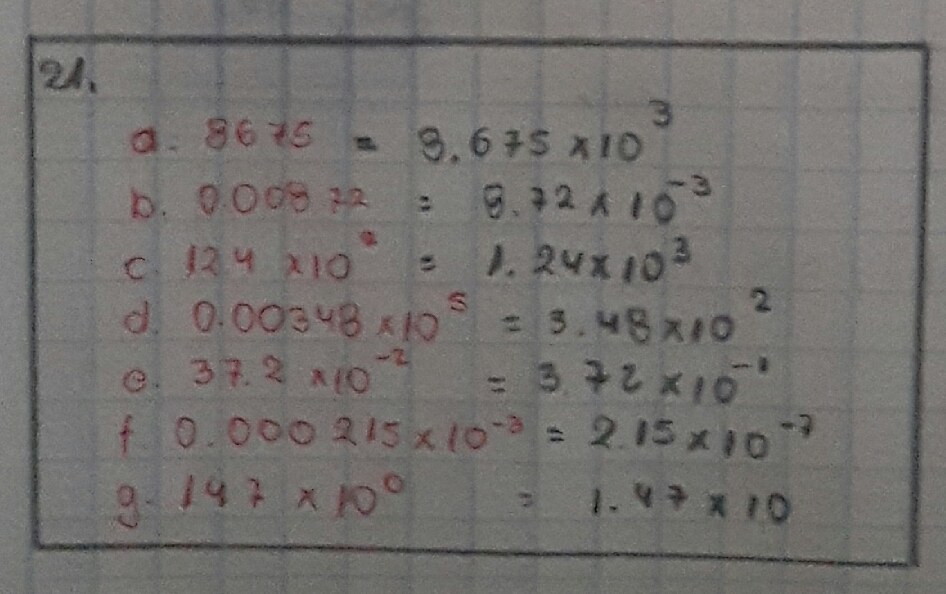 21.
a. 8675 = 8.675 x 10³
b. 0.00872 = 8.72 x 10⁻³
c. 124 x 10 = 1.24 x 10³
d. 0.00348 x 10⁵ = 3.48 x 10²
e. 37.2 x 10⁻² = 3.72 x 10⁻¹
f. 0.000215 x 10⁻³ = 2.15 x 10⁻⁷
g. 147 x 10⁰ = 1.47 x 10